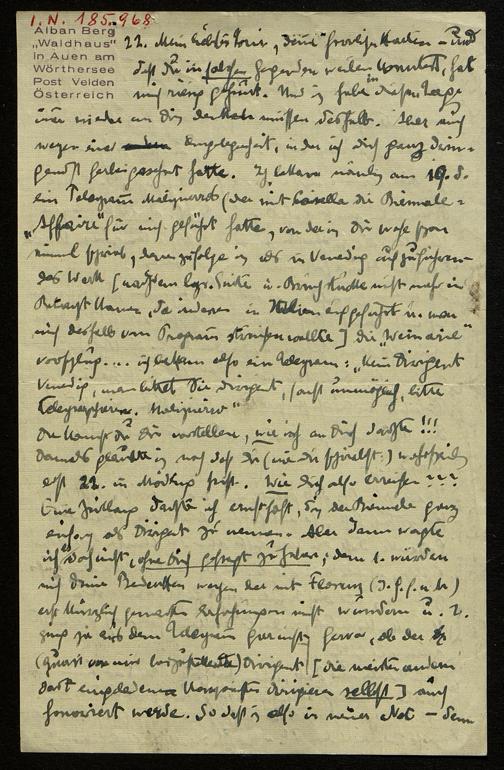 I. N. 185.968
Alban Berg
"Waldhaus"
in Auen am
Wörthersee
Post Velden
Österreich
22. Mein liebster
daß Du in solchen Gegenden weilen konntest, hat
mich riesig gefreut. Und ich habe in diesen Tagen
immer wieder an Dich denken müssen deshalb. Aber auch
wegen einer Angelegenheit, in der ich Dich ganz drin-
gendst herbeigesehnt hatte. Ich bekam nämlich am 19. d.
ein Telegramm Malipieros (der mit Casella die Biennale-
"Affaire" für mich geführt hatte, von der ich Dir wohl schon
einmal schrieb, derzufolge ich als in Venedig aufzuführen-
des Werk [nachdem lyr. Suite u. Bruchstücke nicht mehr in
Betracht kamen, da inderen in Italien aufgeführt u. man
mich deshalb vom Program streichen wollte] die "Weinarie"
vorschlug... ich bekam also ein Telegram: "Kein Dirigent
Venedig, man bittet Sie dirigent, sonst unmöglich, bitte
telegraphieren. Malipiero"
Du kannst Dir vorstellen, wie ich an Dich dachte!!!
Damals glaubte ich noch daß Du (wie Du schriebst:) wahrscheinlich
erst 22. in Mödling bist. Wie Dich also erreichen???
Eine Zeitlang dachte ich ernsthaft, Dich der Biennale ganz
einfach als Dirigent zu nennen. Aber dann wagte
ich's doch nicht, ohne Dich gefragt zu haben; denn 1. würden
mich Deine Bedenken wegen der mit Florenz (I. G. f. n. M)
erst kürzlich gemachten Erfahrungen nicht wundern u. 2.
ging ja aus dem Telegram gar nicht hervor, ob der
(quasi von mir beizustellende) Dirigent [die meisten andern
dort eingeladenen Komponisten dirigieren selbst] auch
honoriert werde. So daß ich also in meiner Not – denn